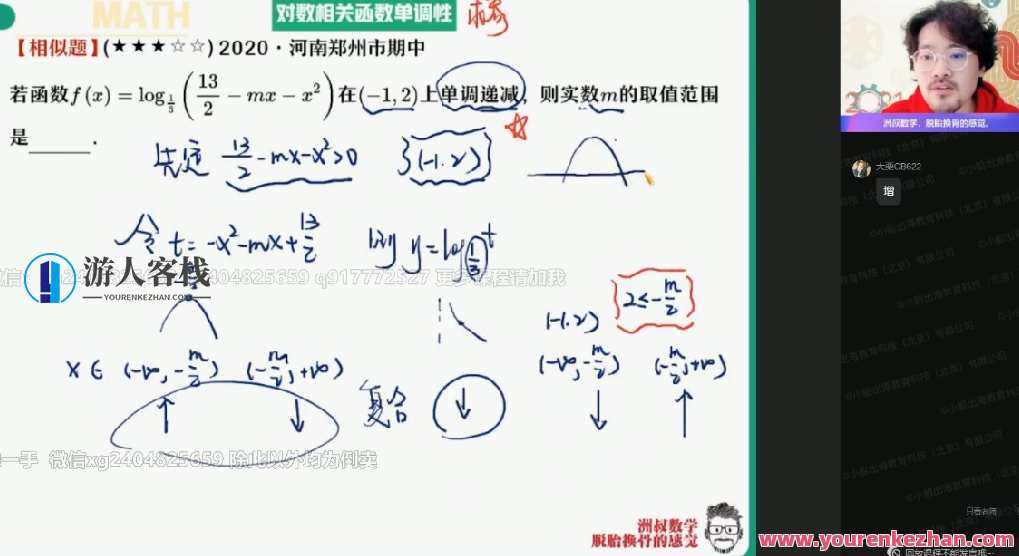 MATH
对数相关函数单调性
【相似题】(★★★☆☆) 2020·河南郑州市期中
若函数f(x)=log_{1/3}(13/2-mx-x²)在(-1,2)上单调递减，则实数m的取值范围
是______.
13/2-mx-x²>0 (-1,2)
令 t=-x²-mx+13/2 则 y=log_{1/3}t
2≤-m/2
(-1,2)
x∈ (-∞,-m/2) (-m/2,+∞) (-∞,-m/2) (-m/2,+∞)
↑ ↓ 复合 ↓ ↓ ↑
游人客栈
YOURENKEZHAN.COM
2404825659 q917772527 更多课程请加我
一手 微信xg2404825659 除此以外均为倒卖
洲叔数学
脱胎换骨的感觉
洲叔数学，脱胎换骨的感觉。
大栗CB622
增
只看老师
www.yourenkezhan.com